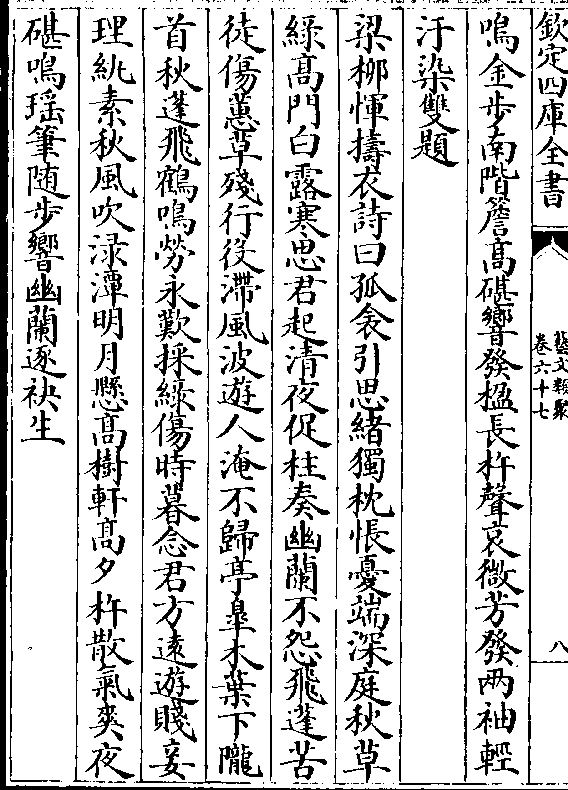 欽定四庫全書
藝文類聚
卷六十七
八
鳴金步南階簷高碪響發楹長杵聲哀微芳發兩袖輕
汗染雙題
梁柳惲擣衣詩曰孤衾引思緒獨枕悵憂端深庭秋草
綠高門白露寒思君起清夜促柱奏幽蘭不怨飛蓬苦
徒傷蕙草殘行役滯風波遊人淹不歸亭臯木葉下隴
首秋蓬飛鶴鳴勞永歎採綠傷時暮念君方遠遊賤妾
理紈素秋風吹淥潭明月懸高樹軒高夕杵散氣爽夜
碪鳴瑶筆随步響幽蘭逐袂生